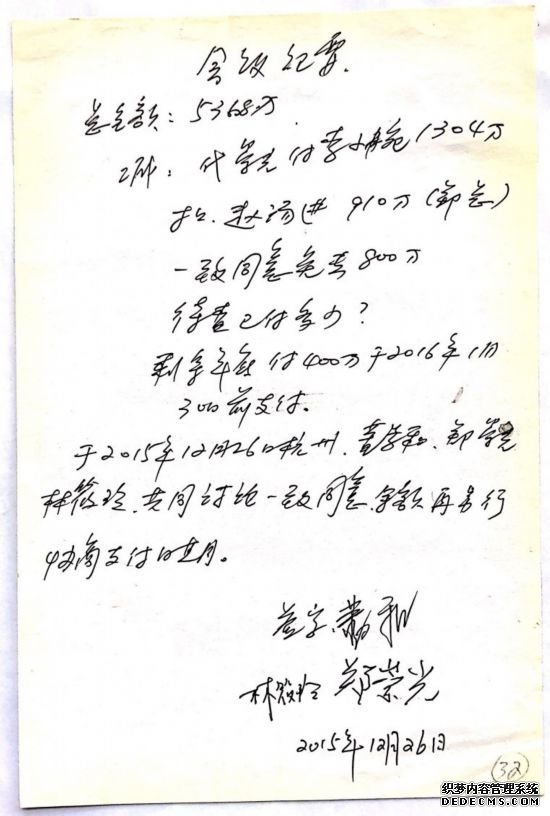 会议纪要
总金额：5368万
工行：代荣光付李小丽宛1304万
扣、赵汤进 910万(郑总)
一致同意先卖800万
待查已付多少？
剩余年底付400万于2016年1月
30日前支付。
于2015年12月26日杭州，董孝和、郑荣光
林筱玲、共同讨论一致同意、余额再另行
协商支付日期。
签字：
林筱玲 郑荣光
2015年12月26日
32
织梦内容管理系统
DEDECMS.COM